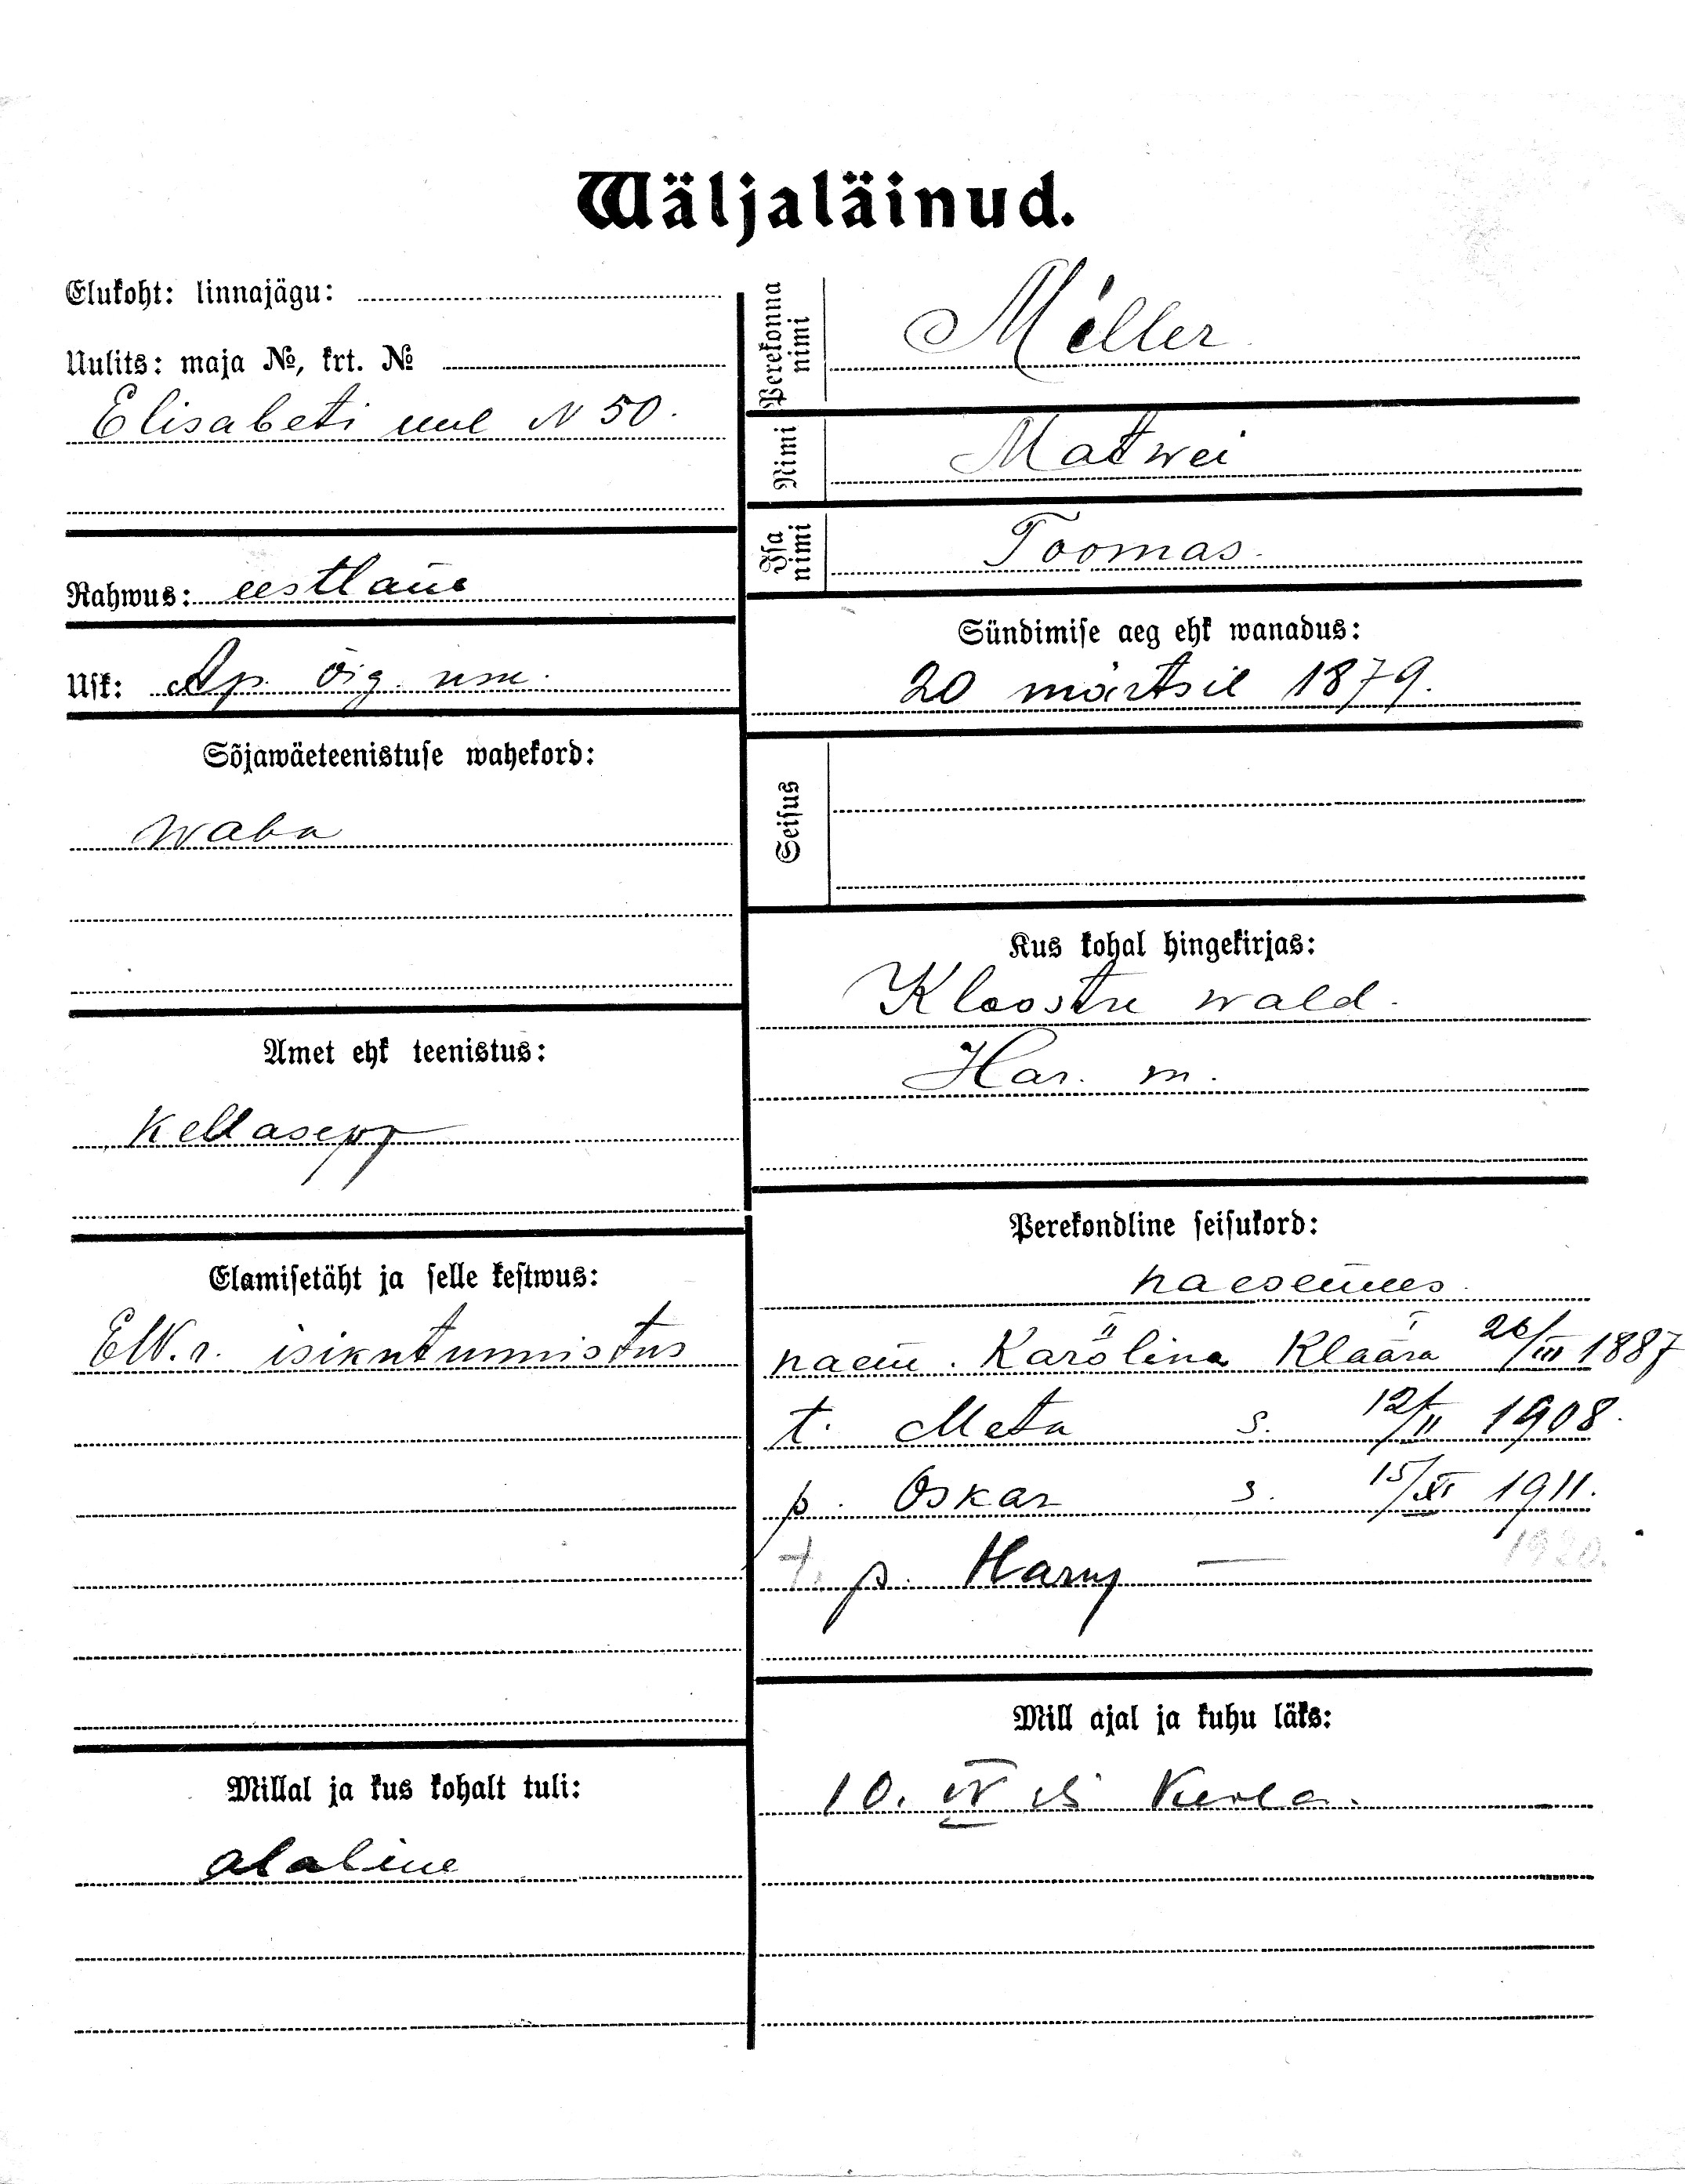 Wäljaläinud.
Elukoht: linnajägu:
Uulits: maja №, krt. №
Elisabeti uul N 50.
Rahwus: eestlane
Usk: Ap. õig. usu.
Sõjawäeteenistuse wahekord:
waba
Amet ehk teenistus:
Kellasepp
Elamisetäht ja selle kestwus:
EW.r. isikutunnistus
Millal ja kus kohalt tuli:
alaline
Perekonna nimi
Miller
Nimi
Matwei
Isa nimi
Toomas.
Sündimise aeg ehk wanadus:
20 märtsil 1879.
Seisus
Kus kohal hingekirjas:
Kloostre wald.
Har. m.
Perekondline seisukord:
naesemees.
naene. Karolina Klaara 26/III 1887
t. Meta s. 12/II 1908.
p. Oskar s. 15/XI 1911.
t. p. Harry — 1920.
Mill ajal ja kuhu läks:
10. IV